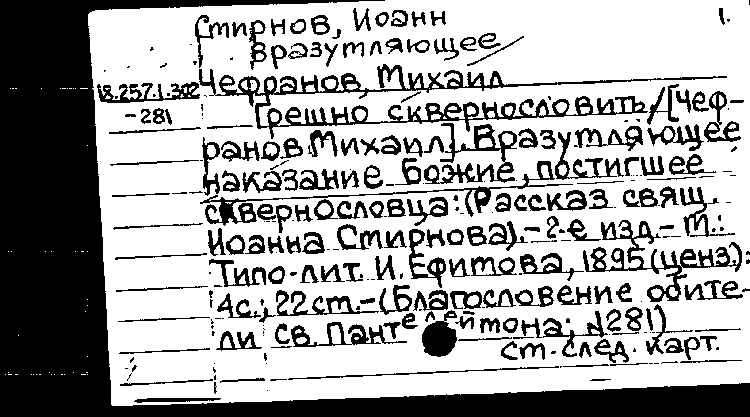 Смирнов, Иоанн 1.
Вразумляющее
18.257.1.302 Чефранов, Михаил
-281 Грешно сквернословить / [Чеф-
ранов Михаил]. Вразумляющее
наказание Божие, постигшее
сквернословца: (Рассказ свящ.
Иоанна Смирнова). - 2-е изд. - М.:
Типо-лит. И. Ефимова, 1895 (ценз.):
4с.; 22 см. - (Благословение обите-
ли св. Пантелеймона; №281)
См. след. карт.